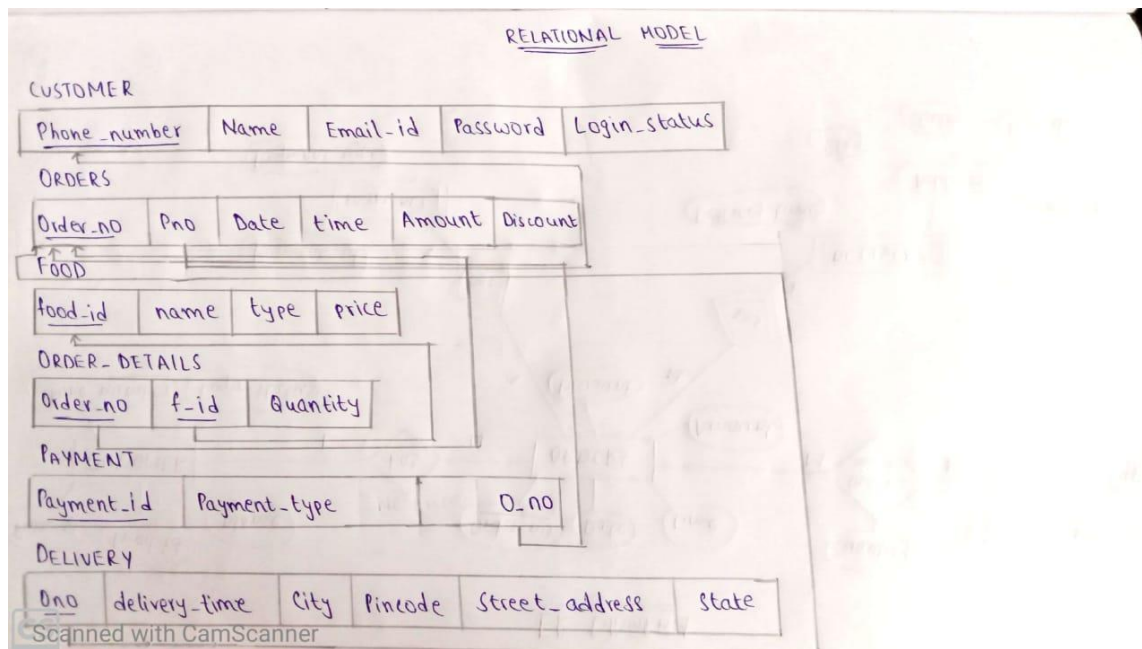 RELATIONAL MODEL
CUSTOMER
Phone_number Name Email-id Password Login_status
ORDERS
Order_no Pno Date time Amount Discount
FOOD
food-id name type price
ORDER- DETAILS
Order_no f-id Quantity
PAYMENT
Payment_id Payment_type O_no
DELIVERY
Ono delivery_time City Pincode Street_address State
CS Scanned with CamScanner